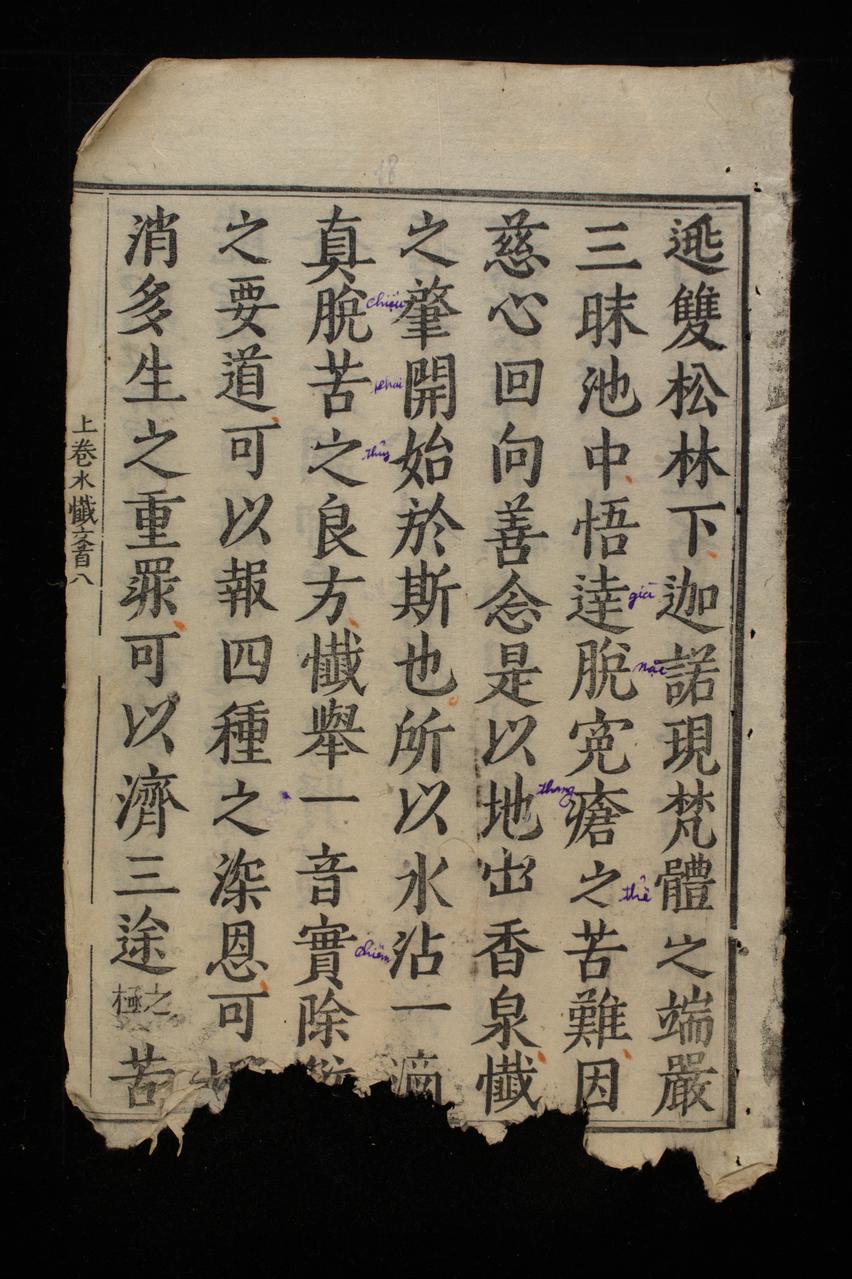 逃雙松林下迦諾現梵體之端嚴
三昧池中悟達脫寃瘡之苦難因
慈心回向善念是以地出香泉懺
之肇開始於斯也所以水沾一滴
真脫苦之良方懺舉一音實除
之要道可以報四種之深恩可
消多生之重罪可以濟三途之極苦
上卷水懺文首八
chiệu
khai
thủy
già
nặc
thang
thể
chiêm